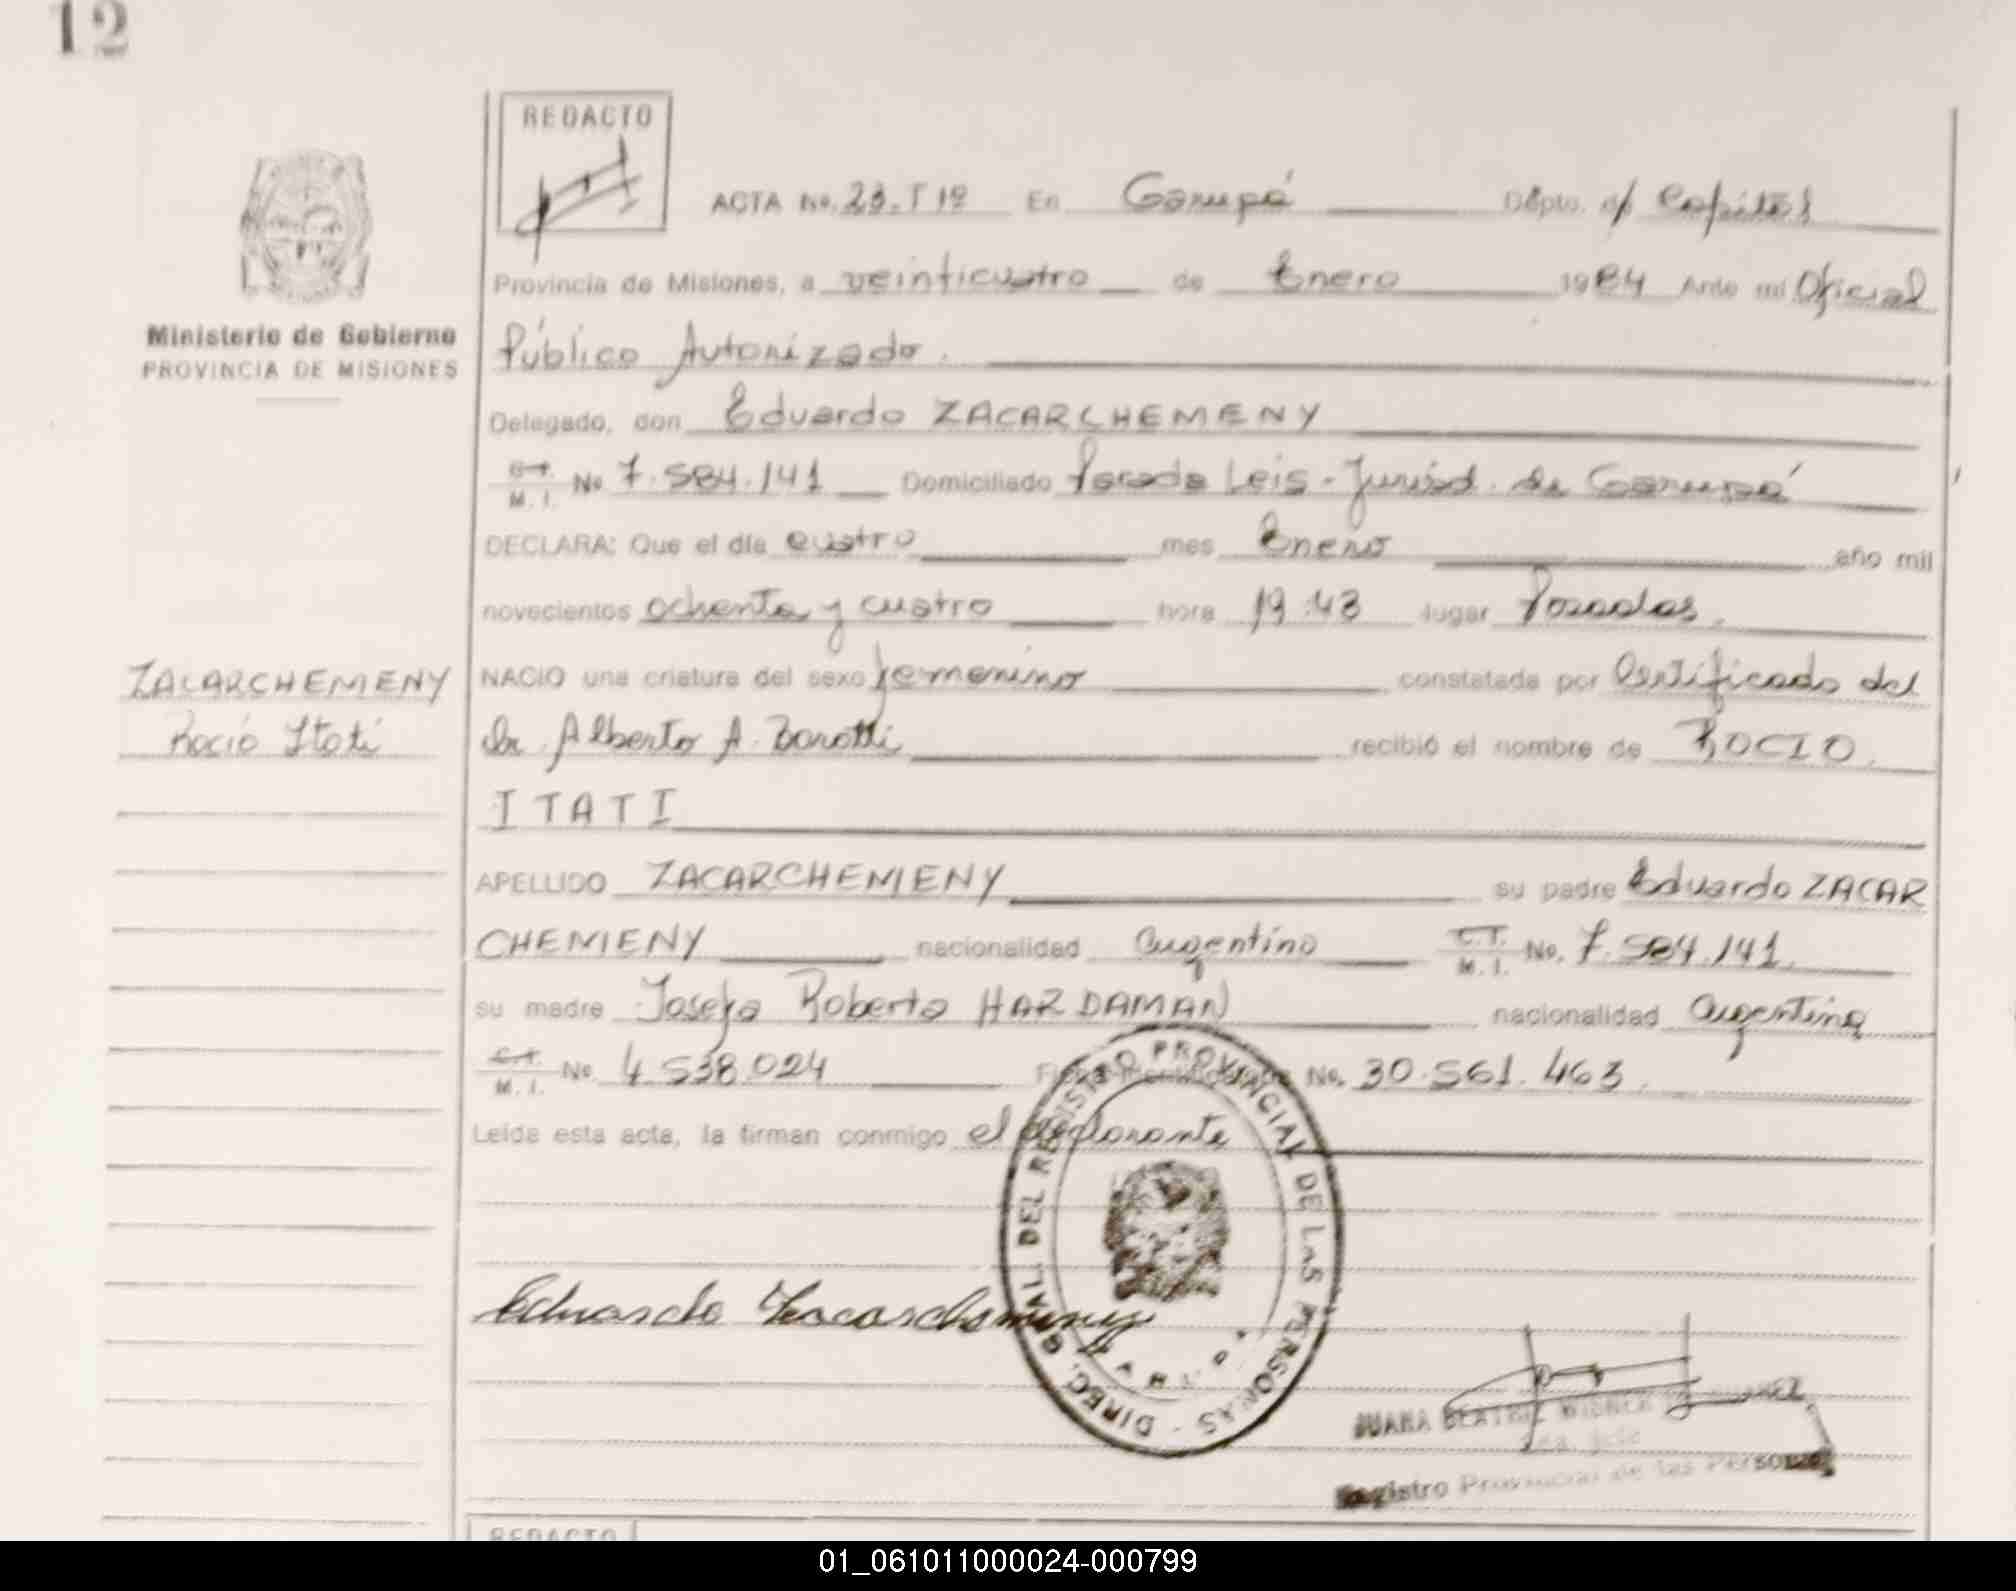 12
REDACTO
ACTA No. 23.T 1º En Garupá Dpto. Capital
Provincia de Misiones, a veinticuatro de Enero 1984 Ante mi Oficial
Público Autorizado.
Ministerio de Gobierno
PROVINCIA DE MISIONES
Delegado, don Eduardo ZACARCHEMENY
C.I. M. I. No 7.584.141 Domiciliado Parada Leis - Jurisd. de Garupá
DECLARA: Que el día cuatro mes Enero año mil
novecientos ochenta y cuatro hora 19:43 lugar Posadas.
ZACARCHEMENY
Rocio Itatí
NACIO una criatura del sexo femenino constatada por Certificado del
Dr. Alberto A. Barotti recibió el nombre de ROCIO
ITATI
APELLIDO ZACARCHEMENY su padre Eduardo ZACAR
CHEMENY nacionalidad argentino C.I. M. I. No. 7.584.141
su madre Josefa Roberta HARDAMAN nacionalidad argentina
C.I. M. I. No. 4.538.024 No. 30.561.463
Leída esta acta, la firman conmigo el declarante
DIREC. GRAL. DEL REGISTRO PROVINCIAL DE LAS PERSONAS
Eduardo Zacarchemeny
JUANA BEATRIZ
Registro Provincial de las Personas
REDACTO
01_061011000024-000799